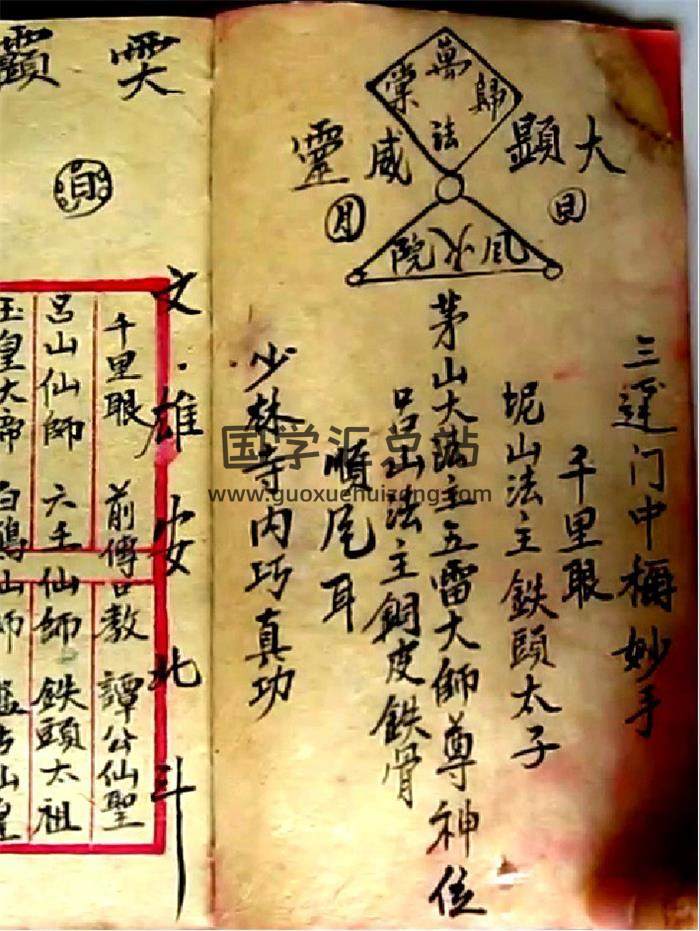 大顯
萬法歸
威靈
日
月
風火院
三蓬门中稱妙手
千里眼
坭山法主鉄頭太子
茅山大法主五雷大師尊神位
吕山法主銅皮鉄骨
順風耳
少林寺内巧真功
文雄安北斗
千里眼 前傳口教 譚公仙聖
吕山仙師 六壬仙師 鉄頭太祖
玉皇大帝 白鶴山師
国学汇总站
www.guoxuehuizong.com